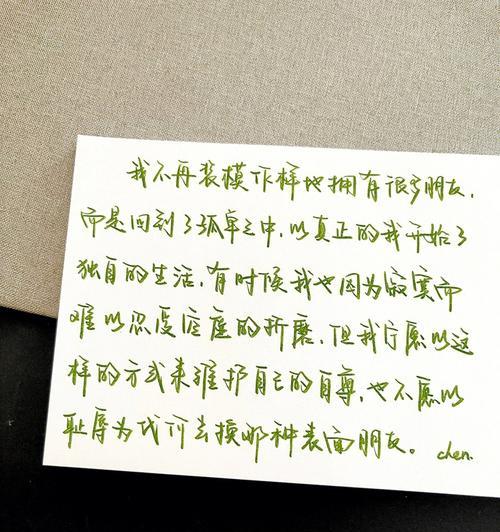 我不再装模作样地拥有很多朋友，
而是回到了孤单之中，以真正的我开始了
独自的生活，有时候我也因为寂寞而
难以忍受空虚的折磨，但我宁愿以这
样的方式来维护自己的自尊，也不愿以
耻辱为代价去换那种表面朋友。 chen.